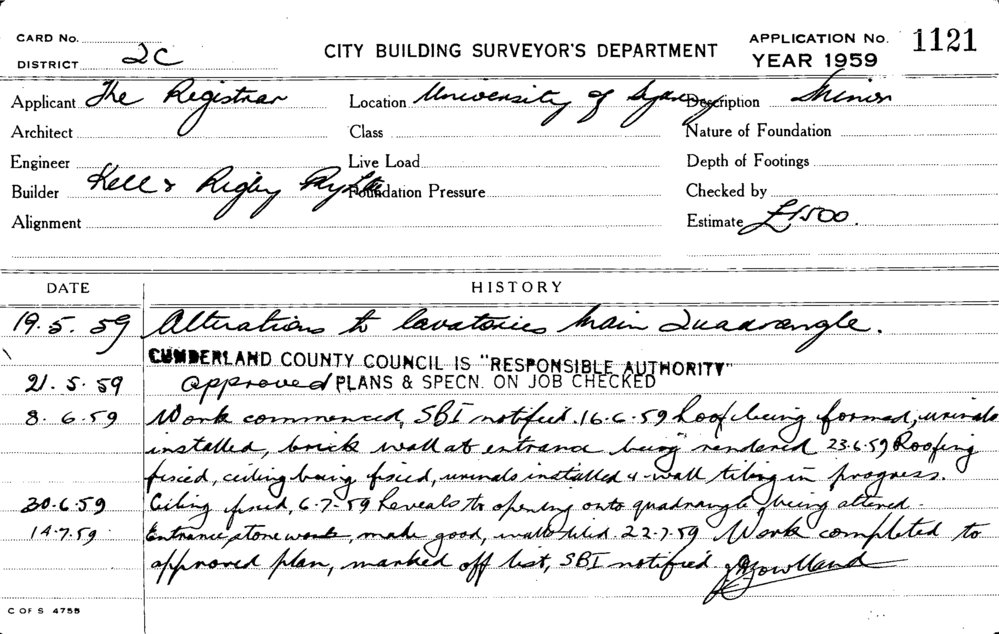 CARD No.
DISTRICT 2C
CITY BUILDING SURVEYOR'S DEPARTMENT
APPLICATION No. 1121
YEAR 1959
Applicant The Registrar Location University of Sydney Description Minor
Architect Class Nature of Foundation
Engineer Live Load Depth of Footings
Builder Kell & Rigby Pty Ltd Foundation Pressure Checked by
Alignment Estimate £1500.
DATE HISTORY
19.5.59 Alterations to lavatories Main Quadrangle.
CUMBERLAND COUNTY COUNCIL IS "RESPONSIBLE AUTHORITY"
21.5.59 approved PLANS & SPECN. ON JOB CHECKED
8.6.59 Work commenced, SBI notified. 16-6-59 Roof being formed, urinals
installed, brick wall at entrance being rendered 23.6.59 Roofing
fixed, ceiling being fixed, urinals installed & wall tiling in progress.
30.6.59 Ceiling fixed, 6-7-59 Reveals to opening onto quadrangle being altered.
14.7.59 Entrance stone work, make good, walls tiled. 22-7-59 Work completed to
approved plan, marked off list, SBI notified.
C OF S 4755